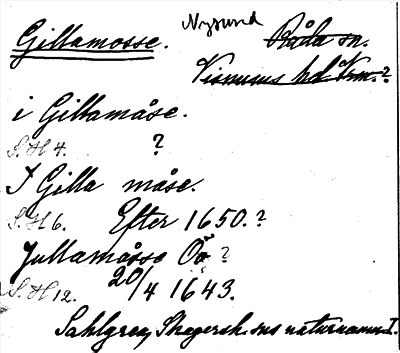 Gillamosse. Nysund Råda sn.
Visnums hd Vrm.?
i Gillamåse.
S. H 4. ?
I Gilla måse.
S. H 6. Efter 1650.?
Jullamåsse Oä ?
S. H 12. 20/4 1643.
Sahlgren, Skagersh. sns naturnamn I.